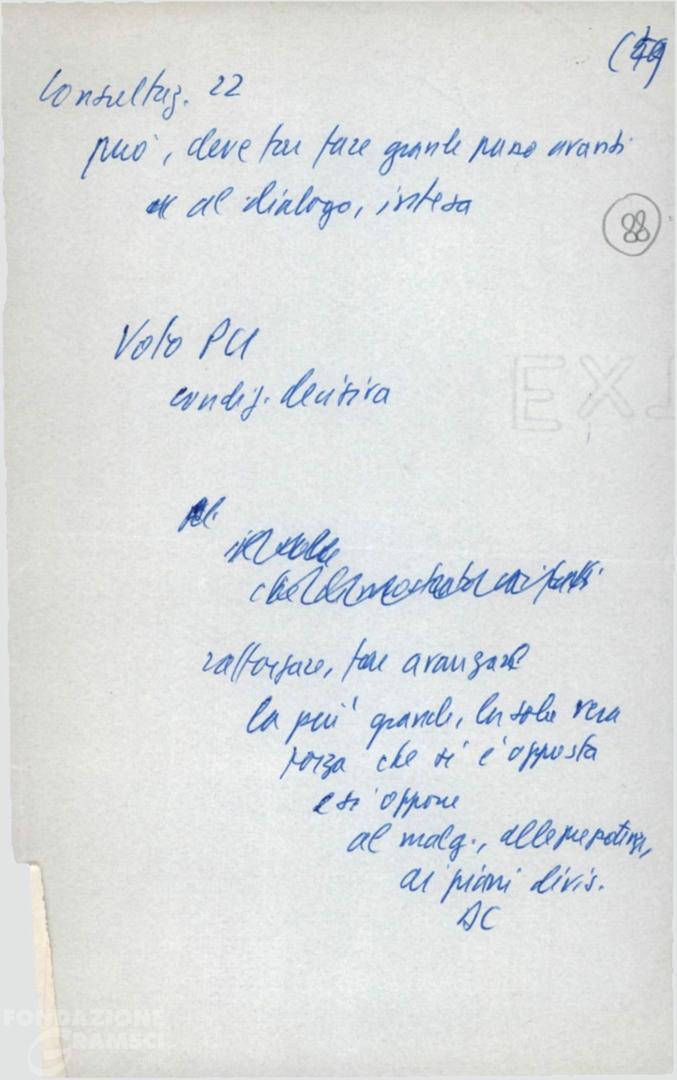 Consultaz. 22
può, deve far fare grande passo avanti
al dialogo, intesa
88
Voto PCI
condiz. decisiva
rafforzare, far avanzare
la più grande, la sola vera
forza che si è opposta
e si oppone
al malg., alle prepotenze,
ai piani divis.
DC
FONDAZIONE
GRAMSCI